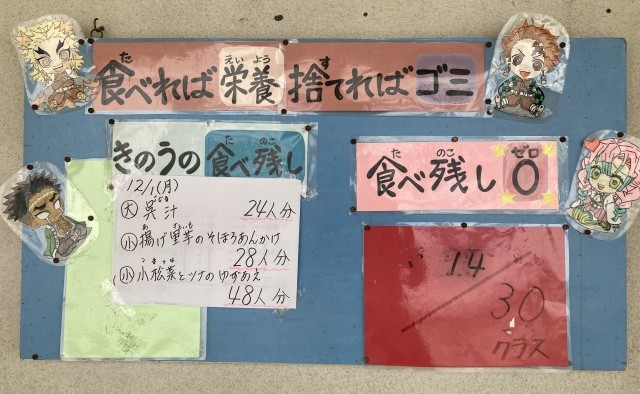 食べれば栄養捨てればゴミ
きのうの食べ残し
12/1(月)
大 呉汁 24人分
小 揚げ里芋のそぼろあんかけ
28人分
小 小松菜とツナのゆずあえ
48人分
食べ残し0
14/30
クラス